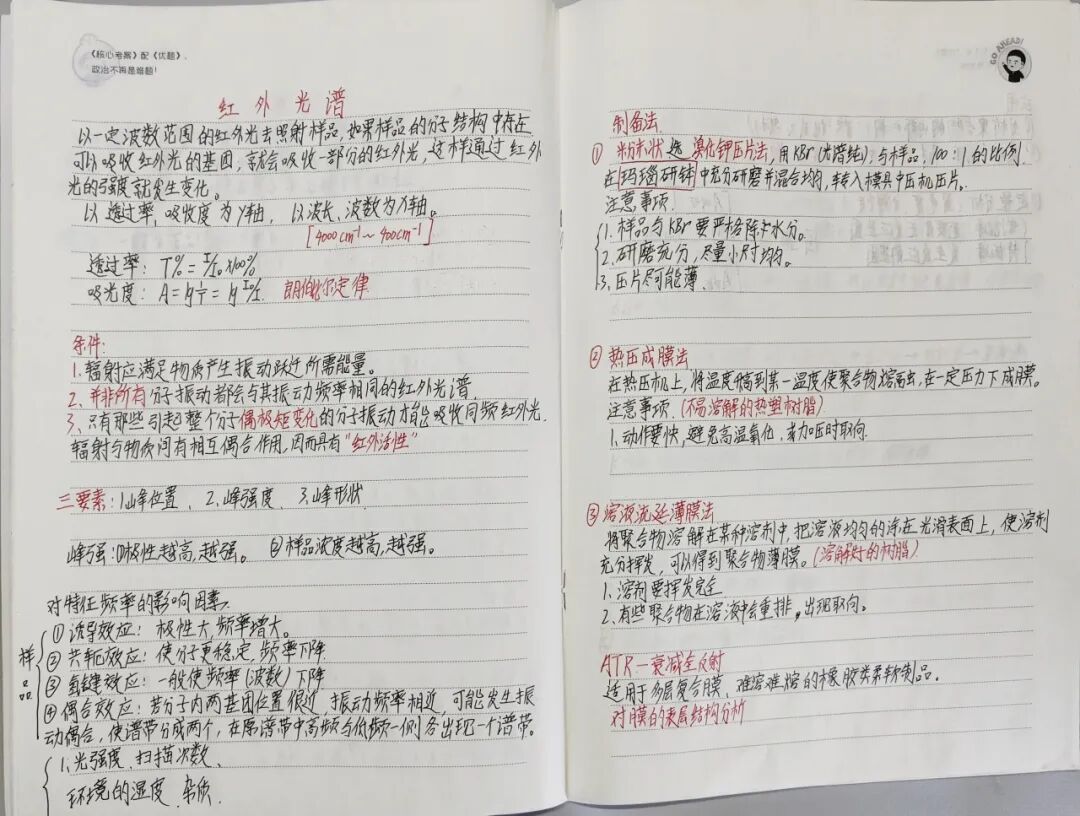 《核心考案》配《优题》,
政治不再是难题!
红外光谱
以一定波数范围的红外光去照射样品,如果样品的分子结构中存在
可以吸收红外光的基团,就会吸收一部分的红外光,这样通过红外
光的强度就发生变化。
以透过率,吸收度为Y轴,以波长、波数为X轴。
[4000cm⁻¹~400cm⁻¹]
透过率:T%=I/I₀×100%
吸光度:A=lg1/T=lgI₀/I. 朗伯比尔定律
条件:
1.辐射应满足物质产生振动跃迁所需能量。
2.并非所有分子振动都会与其振动频率相同的红外光谱
3、只有那些引起整个分子偶极矩变化的分子振动才能吸收同频红外光.
辐射与物质间有相互偶合作用,因而具有"红外活性"
三要素:1.峰位置、2.峰强度、3.峰形状
峰强:①极性越高,越强。②样品浓度越高,越强。
对特征频率的影响因素.
样品
①诱导效应:极性大,频率增大。
②共轭效应:使分子更稳定,频率下降
③氢键效应:一般使频率(波数)下降
④偶合效应:若分子内两基团位置很近,振动频率相近,可能发生振
动偶合,使谱带分成两个,在原谱带中高频与低频一侧各出现一个谱带。
1、光强度、扫描次数、
环境的湿度、杂质.
GO AHEAD!
制备法
①粉末状选溴化钾压片法,用KBr(光谱纯),与样品,100:1的比例.
在玛瑙研钵中充分研磨并混合均,转入模具中压机压片。
注意事项
1.样品与KBr要严格除去水分。
2.研磨充分,尽量小尺寸均匀。
3、压片尽可能薄.
②热压成膜法
在热压机上,将温度调到某一温度使聚合物熔融,在一定压力下成膜。
注意事项.(不易溶解的热塑树脂)
1、动作要快,避免高温氧化,或加压时取向.
③溶液流延薄膜法
将聚合物溶解在某种溶剂中,把溶液均匀的涂在光滑表面上,使溶剂
充分挥发,可以得到聚合物薄膜。(溶解好的树脂)
1、溶剂要挥发完全
2、有些聚合物在溶液中会重排,出现取向。
ATR—衰减全反射
适用于多层复合膜、难溶难熔的橡胶类柔软制品。
对膜的表层结构分析